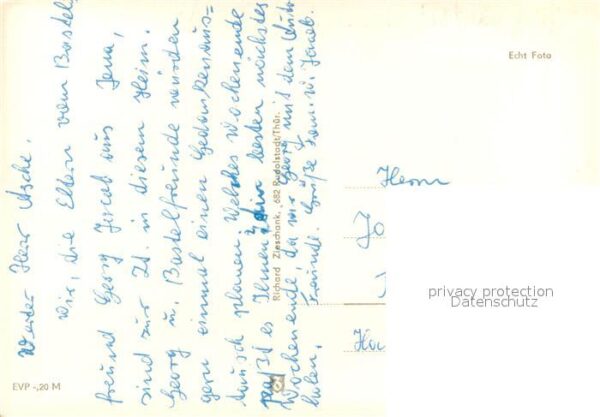 Werter Herr Asche.
wir, die Eltern vom Bastel-
freund Georg Jacob aus Jena,
sind zur Zt. in diesem Heim.
Georg u. Bastelfreunde würden
gern einmal einen Gedankenaus-
tausch planen. Welches Wochenende
paßt es Ihnen, am besten nächstes
Wochenende, da wir Georg mit dem Auto
holen.
Freundl. Grüße Fam. W. Jacob.
Richard Zieschank, 682 Rudolstadt/Thür.
Echt Foto
Herrn
privacy protection
Datenschutz
EVP -,20 M